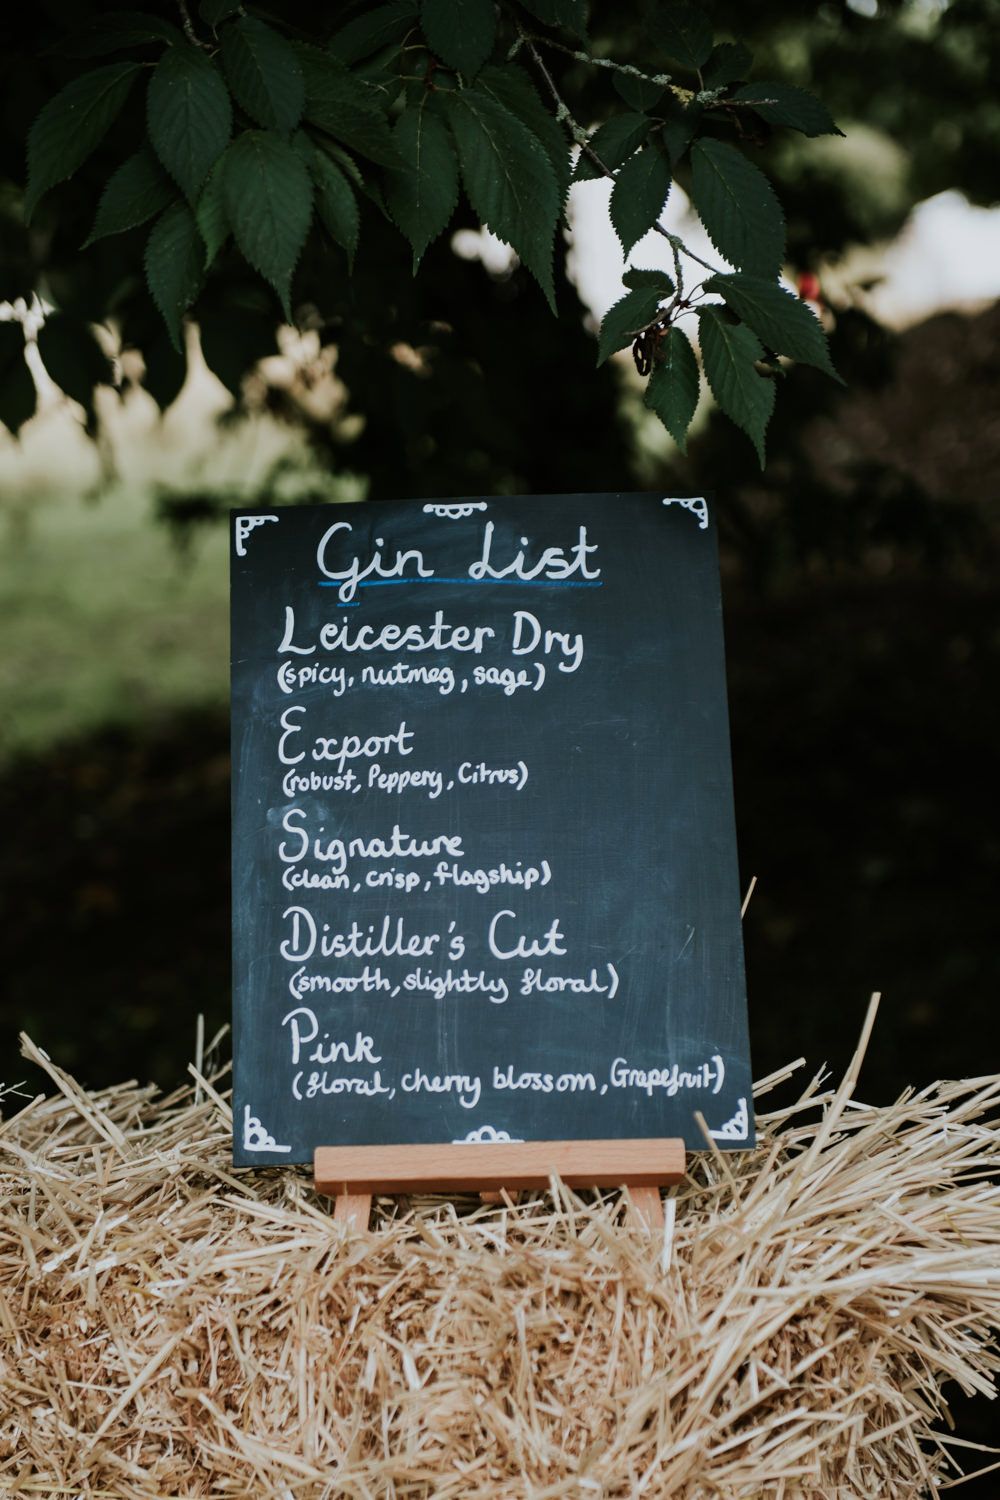 Gin List
Leicester Dry
(spicy, nutmeg, sage)
Export
(robust, Peppery, Citrus)
Signature
(clean, crisp, flagship)
Distiller's Cut
(smooth, slightly floral)
Pink
(floral, cherry blossom, Grapefruit)